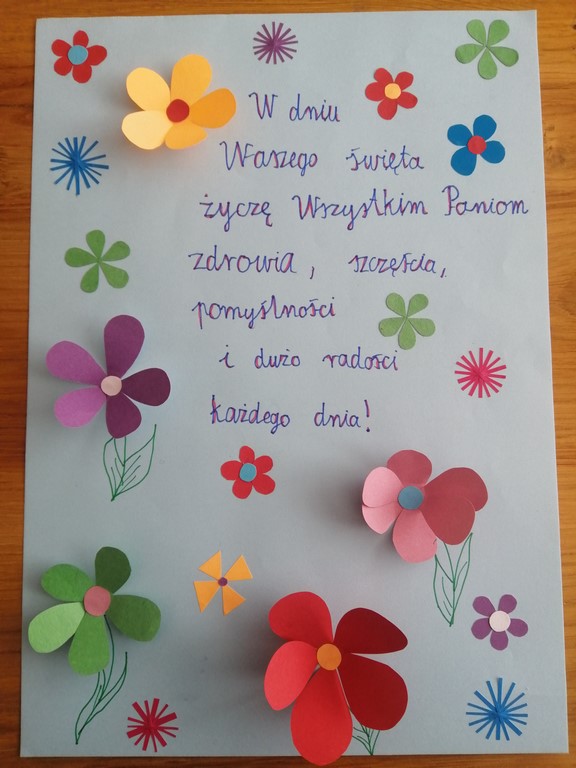 W dniu
Waszego święta
życzę Wszystkim Paniom
zdrowia, szczęścia,
pomyślności
i dużo radości
każdego dnia!